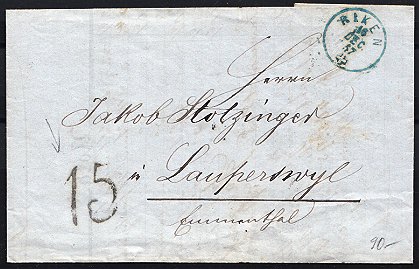 RIKEN
16
DEC
57
Herrn
Jakob Stotzinger
in
Lauperswyl
Emmenthal
15
90.-